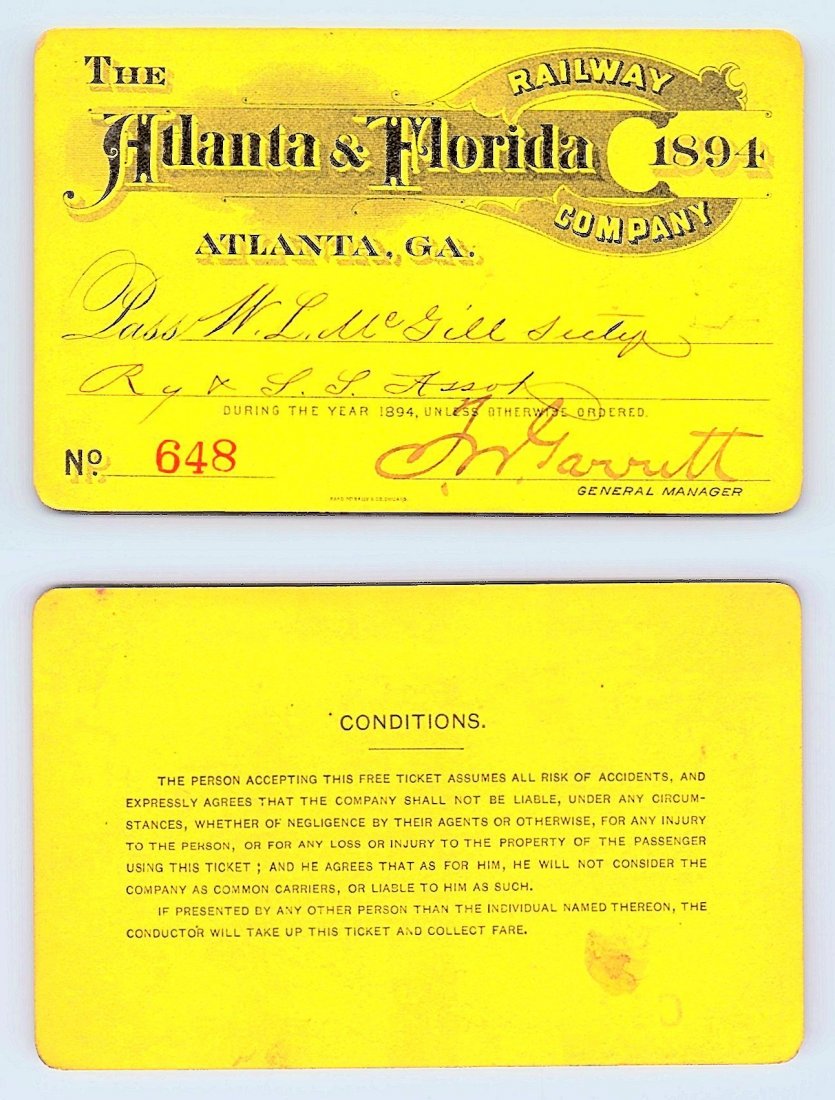 THE
RAILWAY
Atlanta & Florida 1894
COMPANY
ATLANTA, GA.
Pass W. L. McGill Secty
Ry & S. S. Assot
DURING THE YEAR 1894, UNLESS OTHERWISE ORDERED.
No. 648
J.W. Garrett
GENERAL MANAGER
RAND MCNALLY & CO. CHICAGO.
CONDITIONS.
THE PERSON ACCEPTING THIS FREE TICKET ASSUMES ALL RISK OF ACCIDENTS, AND
EXPRESSLY AGREES THAT THE COMPANY SHALL NOT BE LIABLE, UNDER ANY CIRCUM-
STANCES, WHETHER OF NEGLIGENCE BY THEIR AGENTS OR OTHERWISE, FOR ANY INJURY
TO THE PERSON, OR FOR ANY LOSS OR INJURY TO THE PROPERTY OF THE PASSENGER
USING THIS TICKET; AND HE AGREES THAT AS FOR HIM, HE WILL NOT CONSIDER THE
COMPANY AS COMMON CARRIERS, OR LIABLE TO HIM AS SUCH.
IF PRESENTED BY ANY OTHER PERSON THAN THE INDIVIDUAL NAMED THEREON, THE
CONDUCTOR WILL TAKE UP THIS TICKET AND COLLECT FARE.